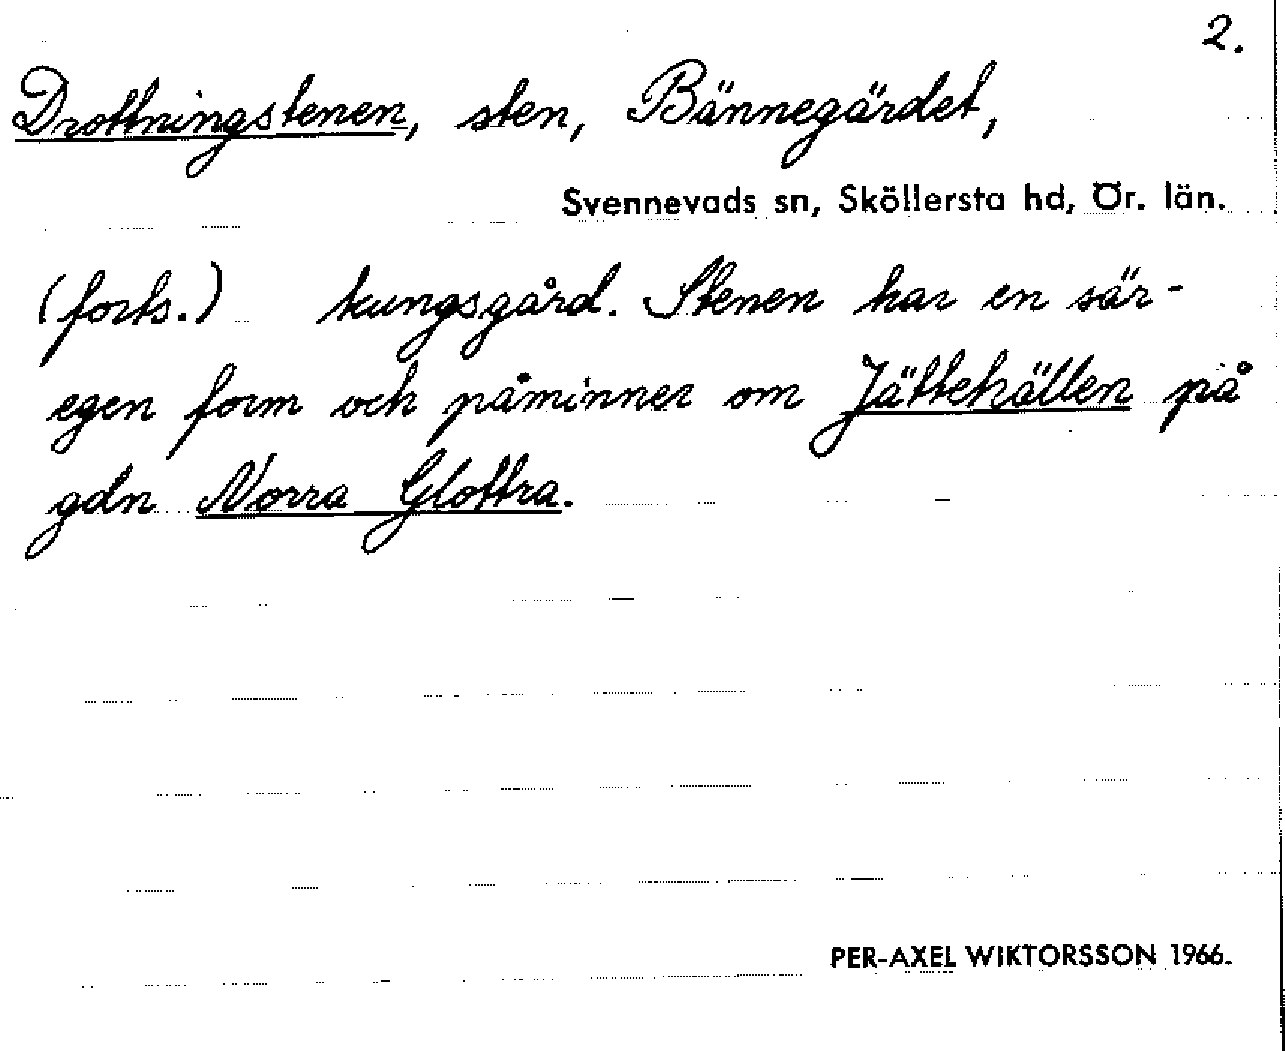 2.
Drottningstenen, sten, Bännegärdet,
Svennevads sn, Sköllersta hd, Ör. län.
(forts.) kungsgård. Stenen har en sär-
egen form och påminner om Jättehällen på
gdn Norra Glottra.
PER-AXEL WIKTORSSON 1966.